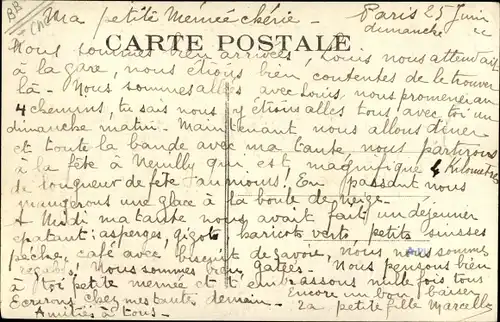 Ma petite Mémée chérie -
Paris 25 Juin
dimanche
CARTE POSTALE
Nous sommes bien arrivées, Louis nous attendait
à la gare, nous étions bien contentes de le trouver
là - Nous sommes allés avec Louis nous promener aux
4 chemins, tu sais nous y étions allés tous avec toi un
dimanche matin - Maintenant nous allons dîner
et toute la bande avec ma tante nous partirons
à la fête à Neuilly qui est magnifique 4 Kilomètres
de longueur de fête au moins! En passant nous
mangerons une glace à la boule de neige.
A Midi ma tante nous avait fait un déjeuner
épatant: asperges, gigot haricots verts, petits suisses
pêches, café avec biscuit de Savoie, nous nous sommes
régalés, Nous sommes bien gatées - Nous pensons bien
à toi petite memée et t'embrassons mille fois tous
Ecrirons chez mes tantes demain - Encore un bon baiser
Amitiés à tous - Ta petite fille Marcelle